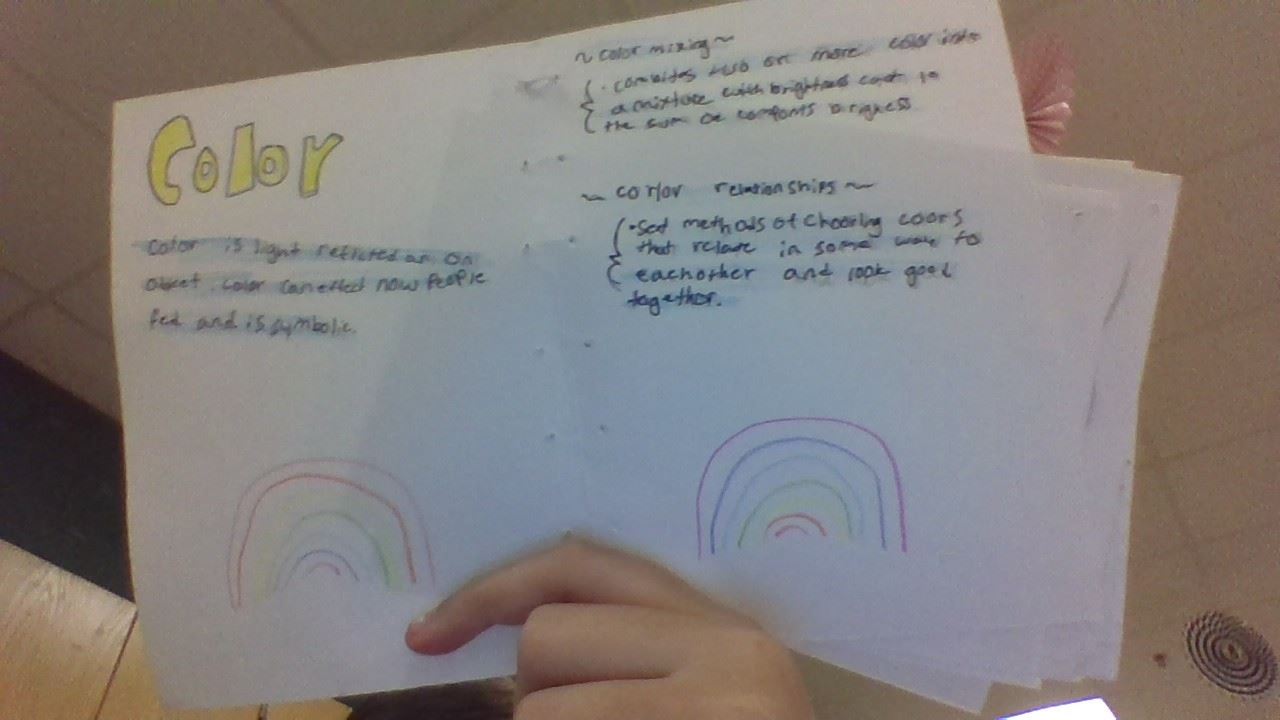 Color
Color is light reflicted an on
object. Color can effect how People
feel and is symbolic.
~ color mixing ~
· combites two or more color into
a mixture with brightnes to
the sum of
~ co/or relationships ~
· Set methods of choosing coors
that relate in some way to
eachother and look good
together.